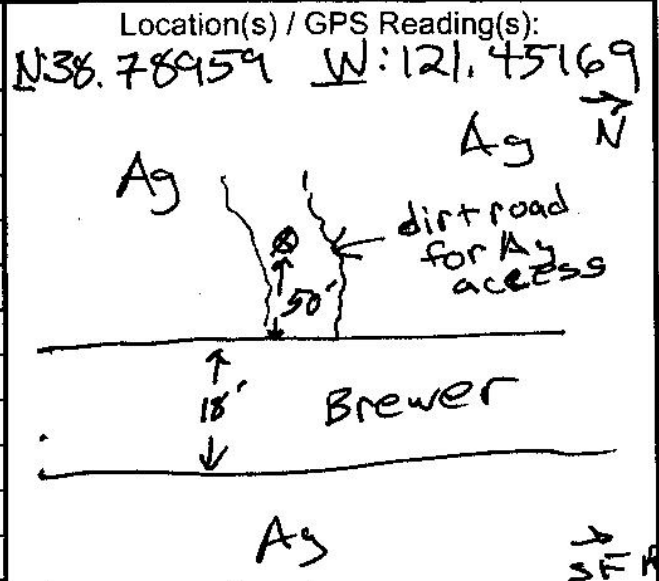 Location(s) / GPS Reading(s):
N38.78959 W:121.45169
N
Ag
Ag
dirt road
for Ag
access
50'
18'
Brewer
Ag